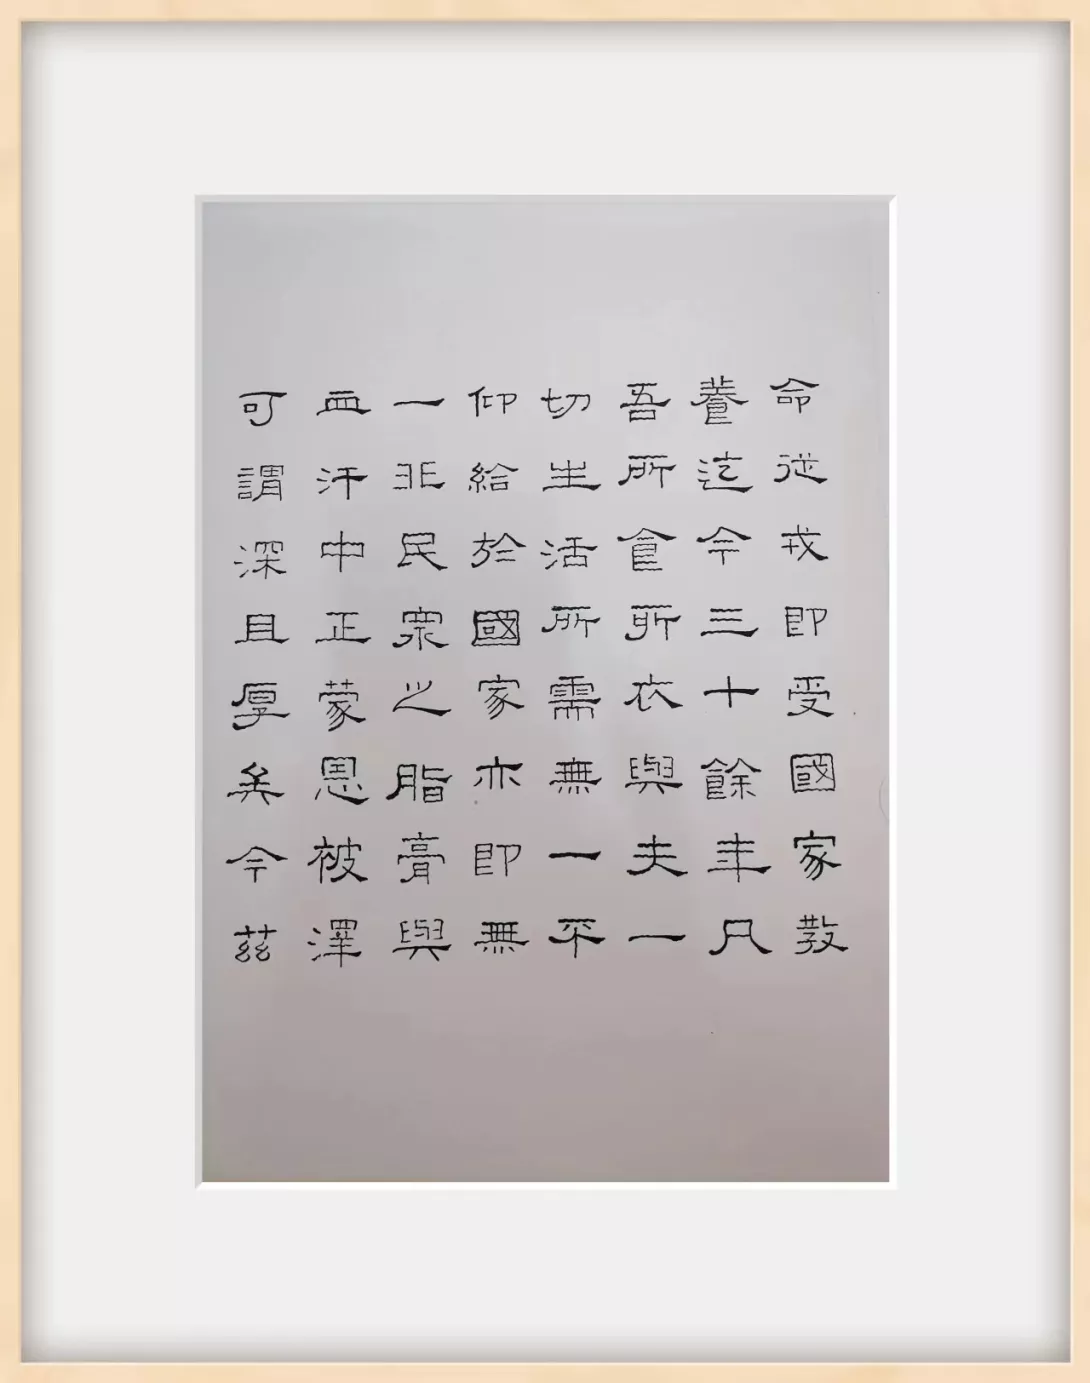 命從戎即受國家教
養迄今三十餘年凡
吾所食所衣與夫一
切生活所需無一平
仰給於國家亦即無
一非民眾之脂膏與
血汗中正蒙恩被澤
可謂深且厚矣今茲